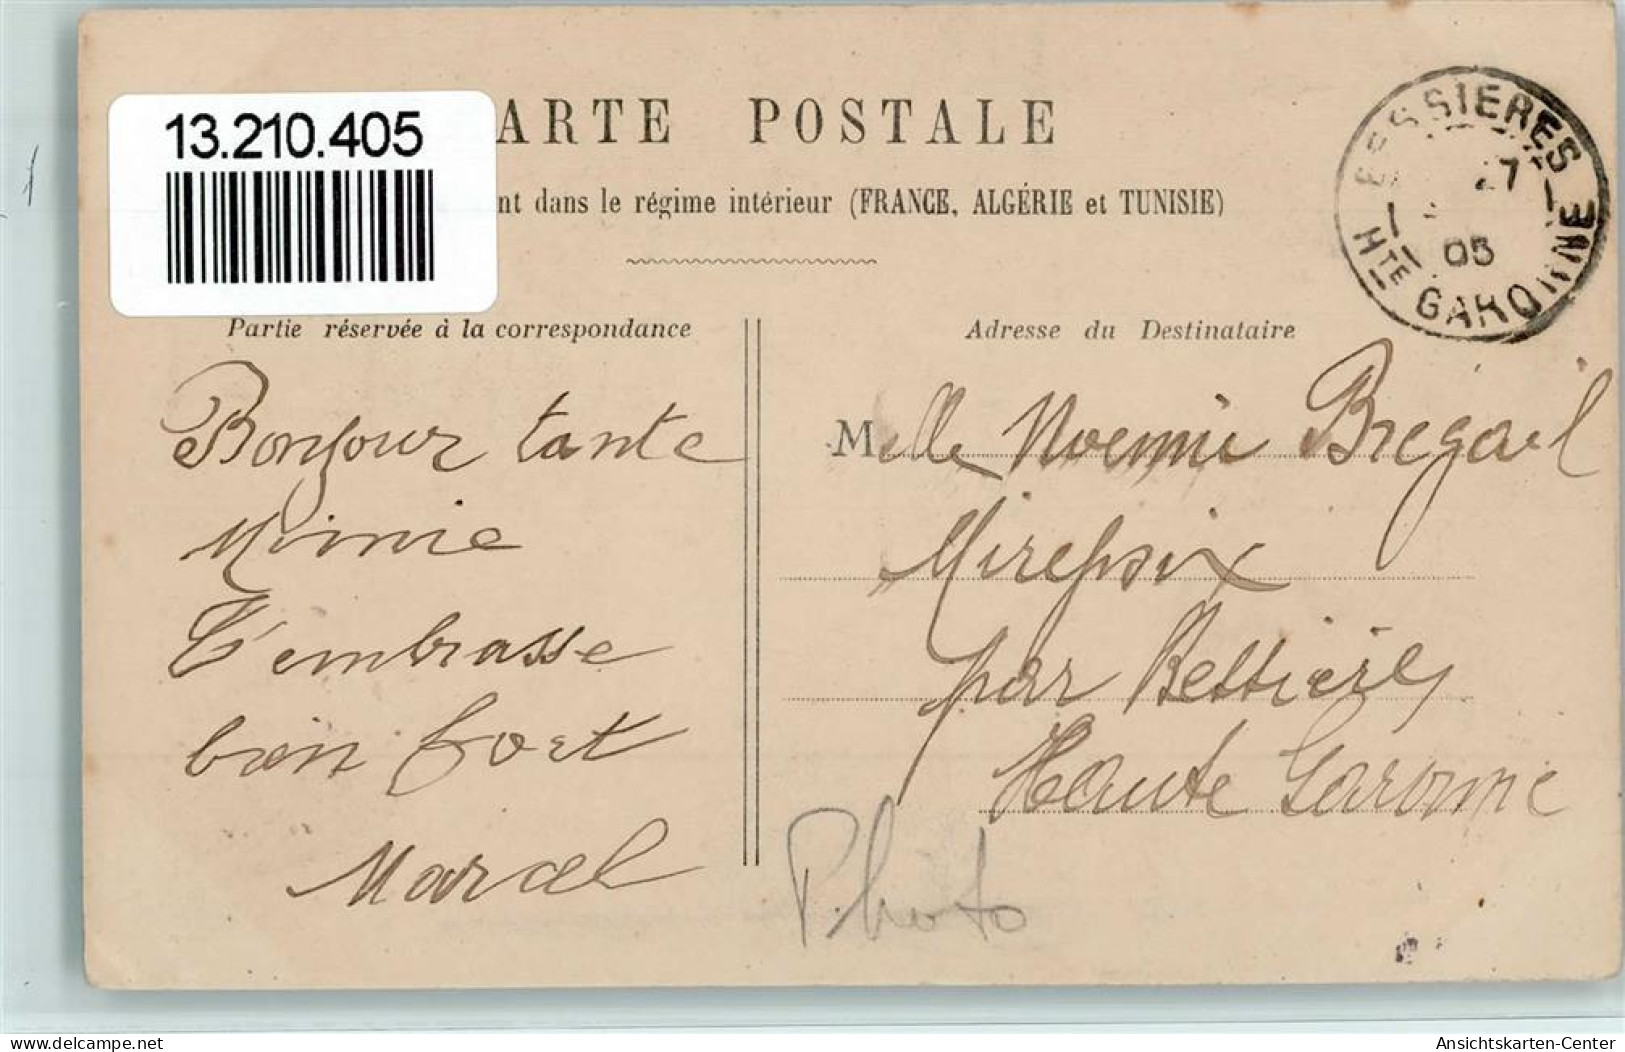 13.210.405
ARTE POSTALE
nt dans le régime intérieur (FRANCE, ALGÉRIE et TUNISIE)
BESSIERES
27
05
HTE GARONNE
Partie réservée à la correspondance
Bonjour tante
Mimie
T'embrasse
bien fort
Marcel
Adresse du Destinataire
Melle Noemie Bregail
Mirepoix
par Bessières
Haute Garonne
Photo
Ansichtskarten-Center
delcampe.net